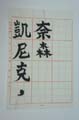 奈森
凱尼克，